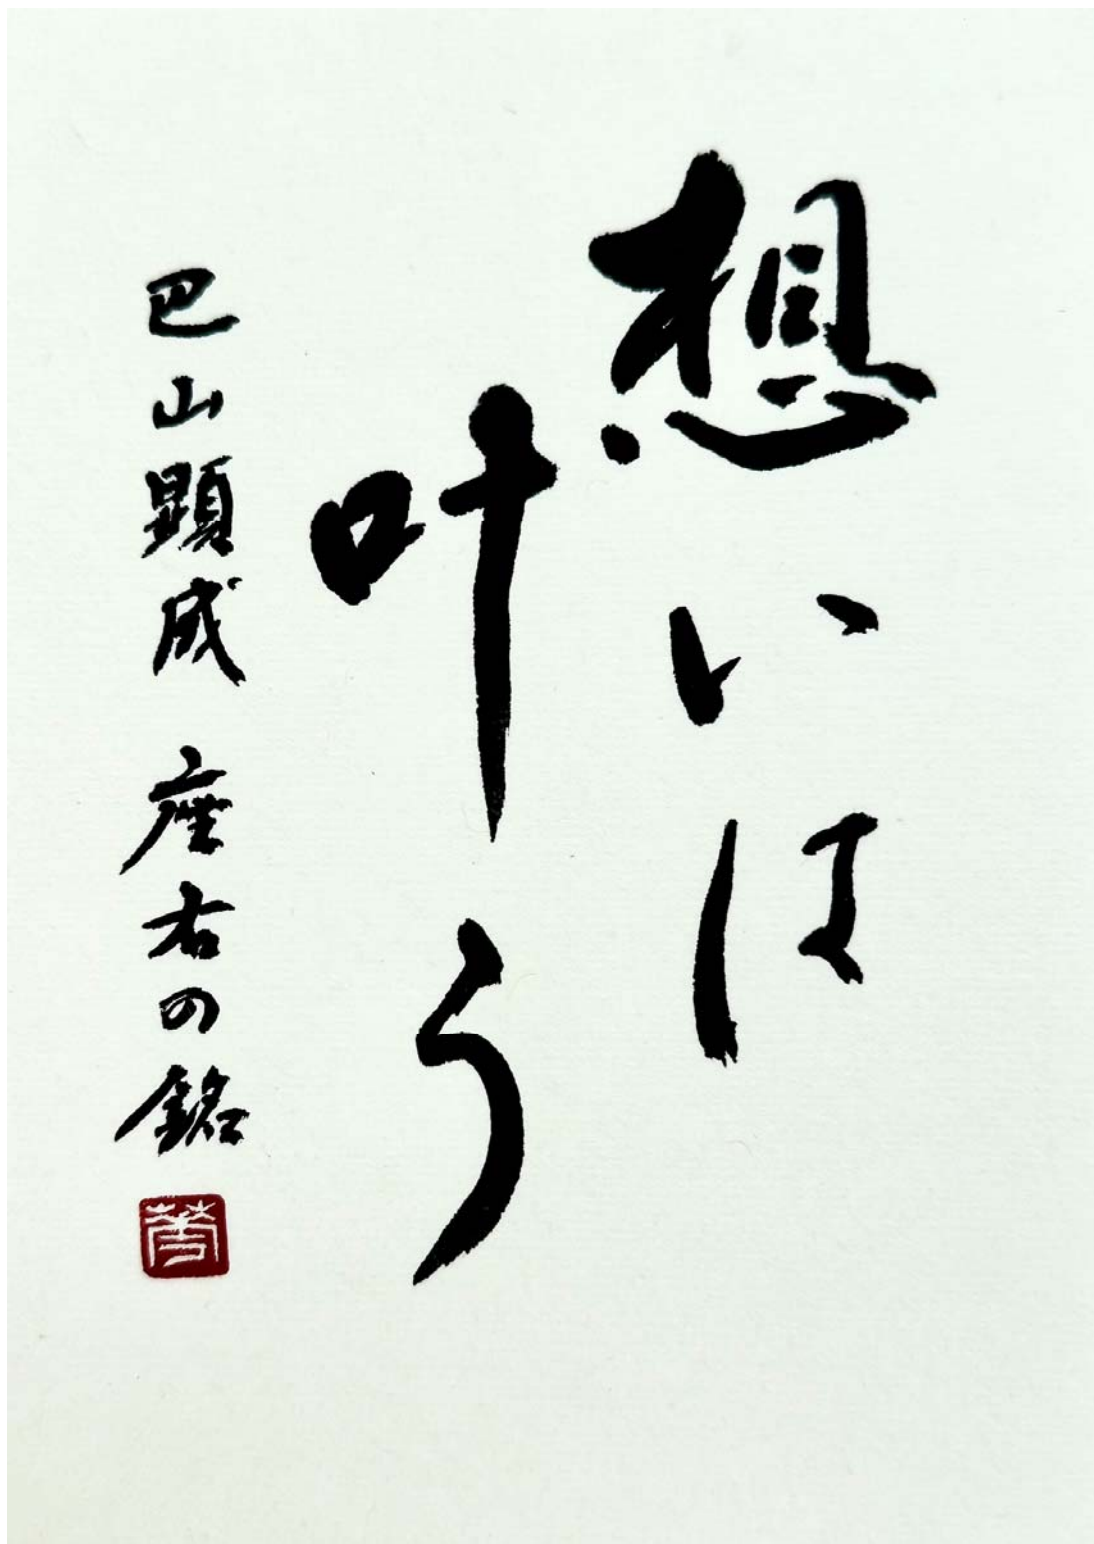 想いは
叶う
巴山顕成 座右の銘